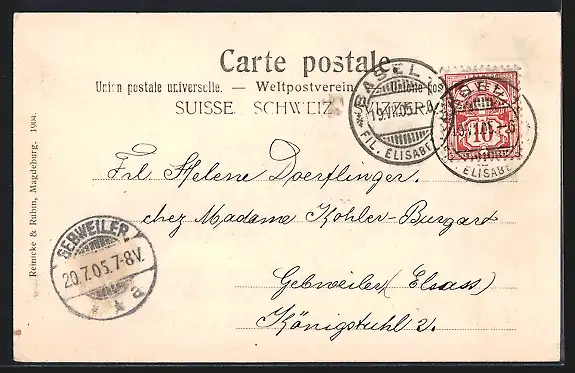 Carte postale.
Union postale universelle. — Weltpostverein. — Unione pos
SUISSE. SCHWEIZ. SVIZZERA.
BASEL
19.VII.05.
FIL. ELISABE
10
19.VII.05.-6
ELISABE
Frl Helene Doerflinger.
chez Madame Kohler-Burgart
Gebweiler (Elsass)
Königstuhl 2.
GEBWEILER
20.7.05.7-8V.
a
Reinicke & Rubin, Magdeburg. 1904.